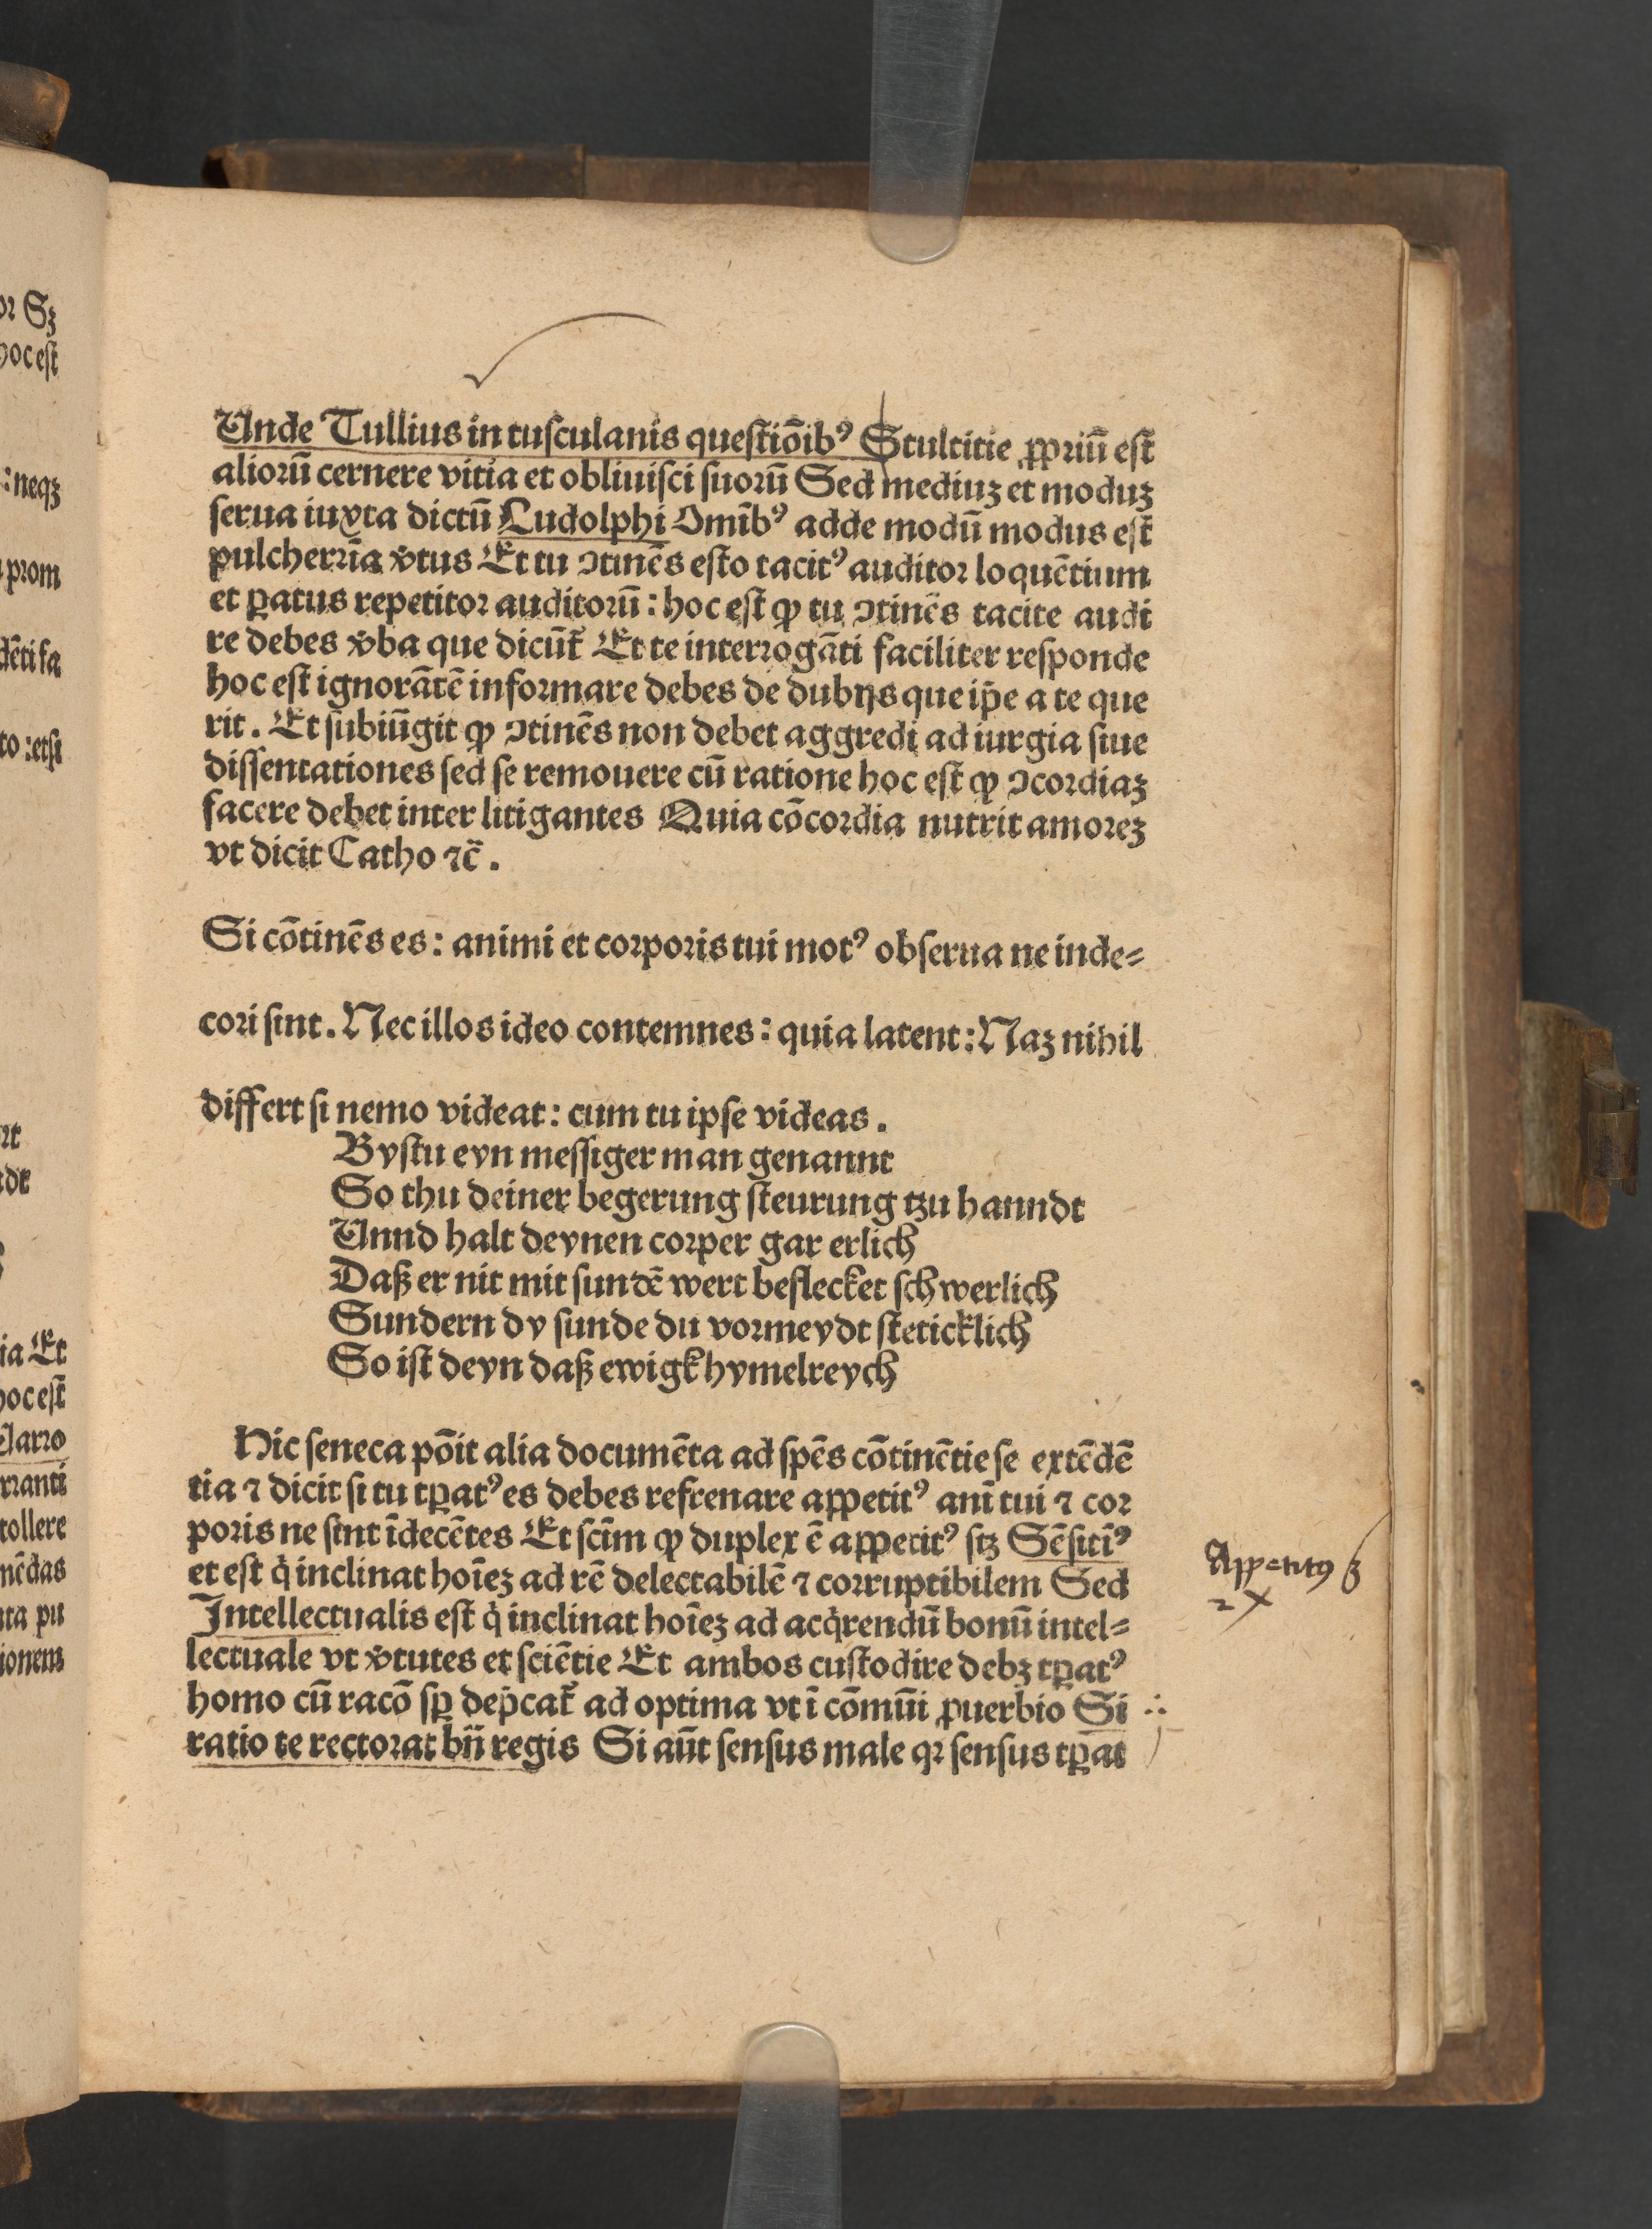 Unde Tullius in tusculanis questiōibꝰ Stultitie ꝓpriū est
aliorū cernere vitia et obliuisci suorū Sed mediuꝫ et moduꝫ
serua iuxta dictū Ludolphi Omībꝰ adde modū modus est
pulcherrīa v̄tus Et tu ↄtinēs esto tacitꝰ auditor loquētium
et ꝑatus repetitor auditorū : hoc est ꝙ tu ↄtinēs tacite audi
re debes v̄ba que dicūt̄ Et te interrogāti faciliter responde
hoc est ignorātē informare debes de dubijs que ip̄e a te que
rit . Et subiūgit ꝙ ↄtinēs non debet aggredi ad iurgia siue
dissentationes sed se remouere cū ratione hoc est ꝙ ↄcordiaꝫ
facere debet inter litigantes Quia cōcordia nutrit amoreꝫ
vt dicit Catho ⁊c̄ .
Si cōtinēs es : animi et corporis tui motꝰ obserua ne inde⸗
cori sint . Nec illos ideo contemnes : quia latent : Naꝫ nihil
differt si nemo videat : cum tu ipse videas .
Bystu eyn messiger man genannt
So thu deiner begerung steurung tzu hanndt
Unnd halt deynen corper gar erlich
Daß er nit mit sundē wert beflecket schwerlich
Sundern dy sunde du vormeydt steticklich
So ist deyn daß ewigk hymelreych
Hic seneca pōit alia documēta ad spēs cōtinētie se extēdē
tia ⁊ dicit si tu tꝑatꝰ es debes refrenare appetitꝰ anī tui ⁊ cor
poris ne sint īdecētes Et scīm ꝙ duplex ē appetitꝰ sꝫ Sēsitīꝰ
et est q̇ inclinat hoīeꝫ ad rē delectabilē ⁊ corruptibilem Sed
Intellectualis est q̇ inclinat hoīeꝫ ad acq̇rendū bonū intel⸗
lectuale vt v̄tutes et sciētie Et ambos custodire debꝫ tꝑatꝰ
homo cū racō sꝑ dep̄cat̄ ad optima vt ī cōmūi ꝓuerbio Si
ratio te rectorat bn̄ regis Si aūt sensus male qꝛ sensus tꝑat
Appetitꝰ
2x